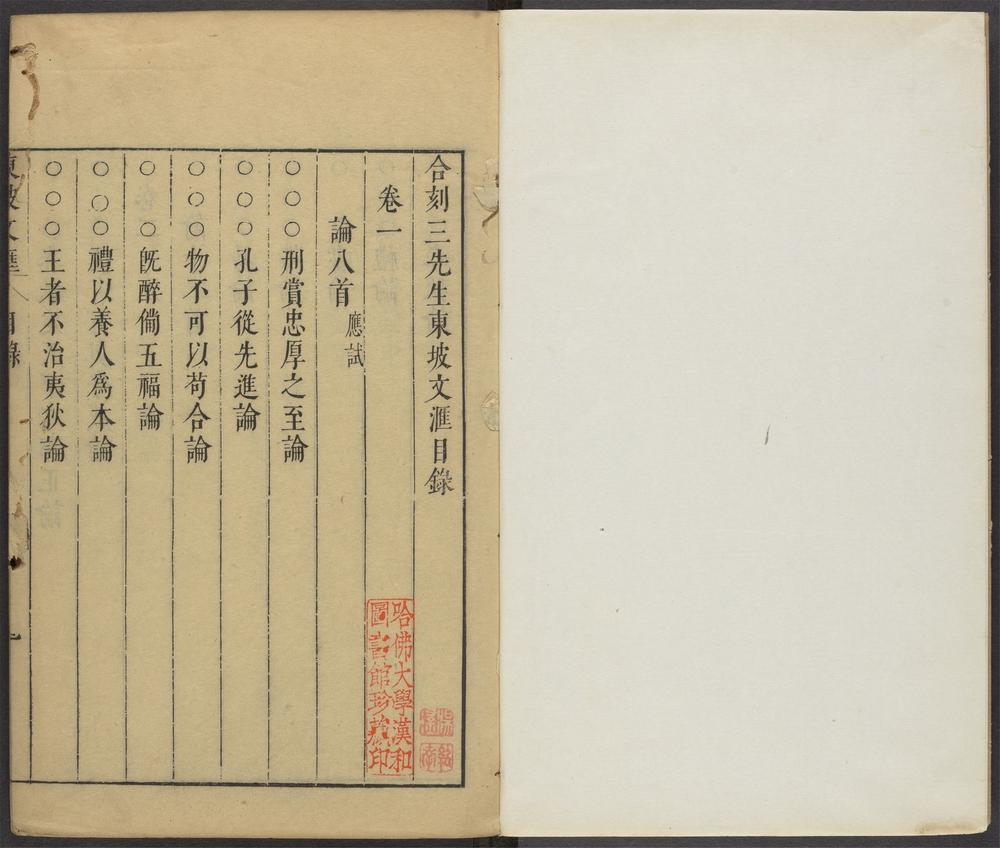 合刻三先生東坡文滙目錄
卷一
論八首 應試
○○○刑賞忠厚之至論
○○○孔子從先進論
○○○物不可以苟合論
○○既醉備五福論
○○○禮以養人爲本論
○○○王者不治夷狄論
東坡文滙 目錄
哈佛大學漢和
圖書館珍藏印